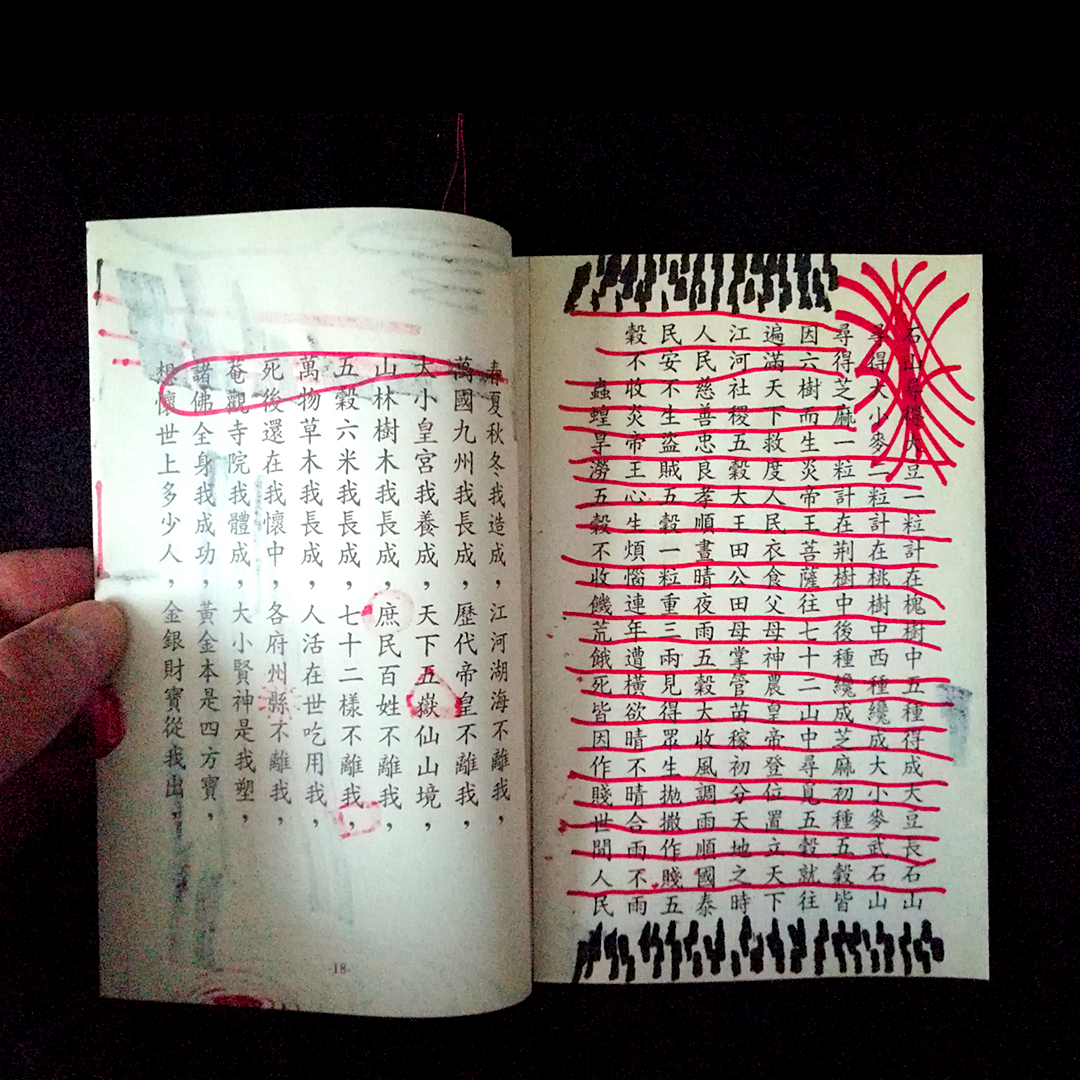 石山尋得大豆一粒計在槐樹中五種得成大豆長石山
尋得大小麥二粒計在桃樹中西種纔成大小麥武石山
尋得芝麻一粒計在荆樹中後種纔成芝麻初種五穀皆
因六樹而生炎帝王菩薩往七十二山中尋覓五穀就往
遍滿天下救度人民衣食父母神農皇帝登位置立天下
江河社稷五穀大王田公田母掌管苗稼初分天地之時
人民慈善忠良孝順晝晴夜雨五穀大收風調雨順國泰
民安不生盜賊五穀一粒重三兩見得眾生拋撒作賤五
穀不收炎帝王心生煩惱連年遭橫欲晴不晴合雨不雨
蟲蝗旱澇五穀不收饑荒餓死皆因作賤世間人民
春夏秋冬我造成，江河湖海不離我，
萬國九州我長成，歷代帝皇不離我，
大小皇宮我養成，天下五嶽仙山境，
山林樹木我長成，庶民百姓不離我，
五穀六米我長成，七十二樣不離我，
萬物草木我長成，人活在世吃用我，
死後還在我懷中，各府州縣不離我，
菴觀寺院我體成，大小賢神是我塑，
諸佛全身我成功，黃金本是四方寶，
想懷世上多少人，金銀財寶從我出，
-18-